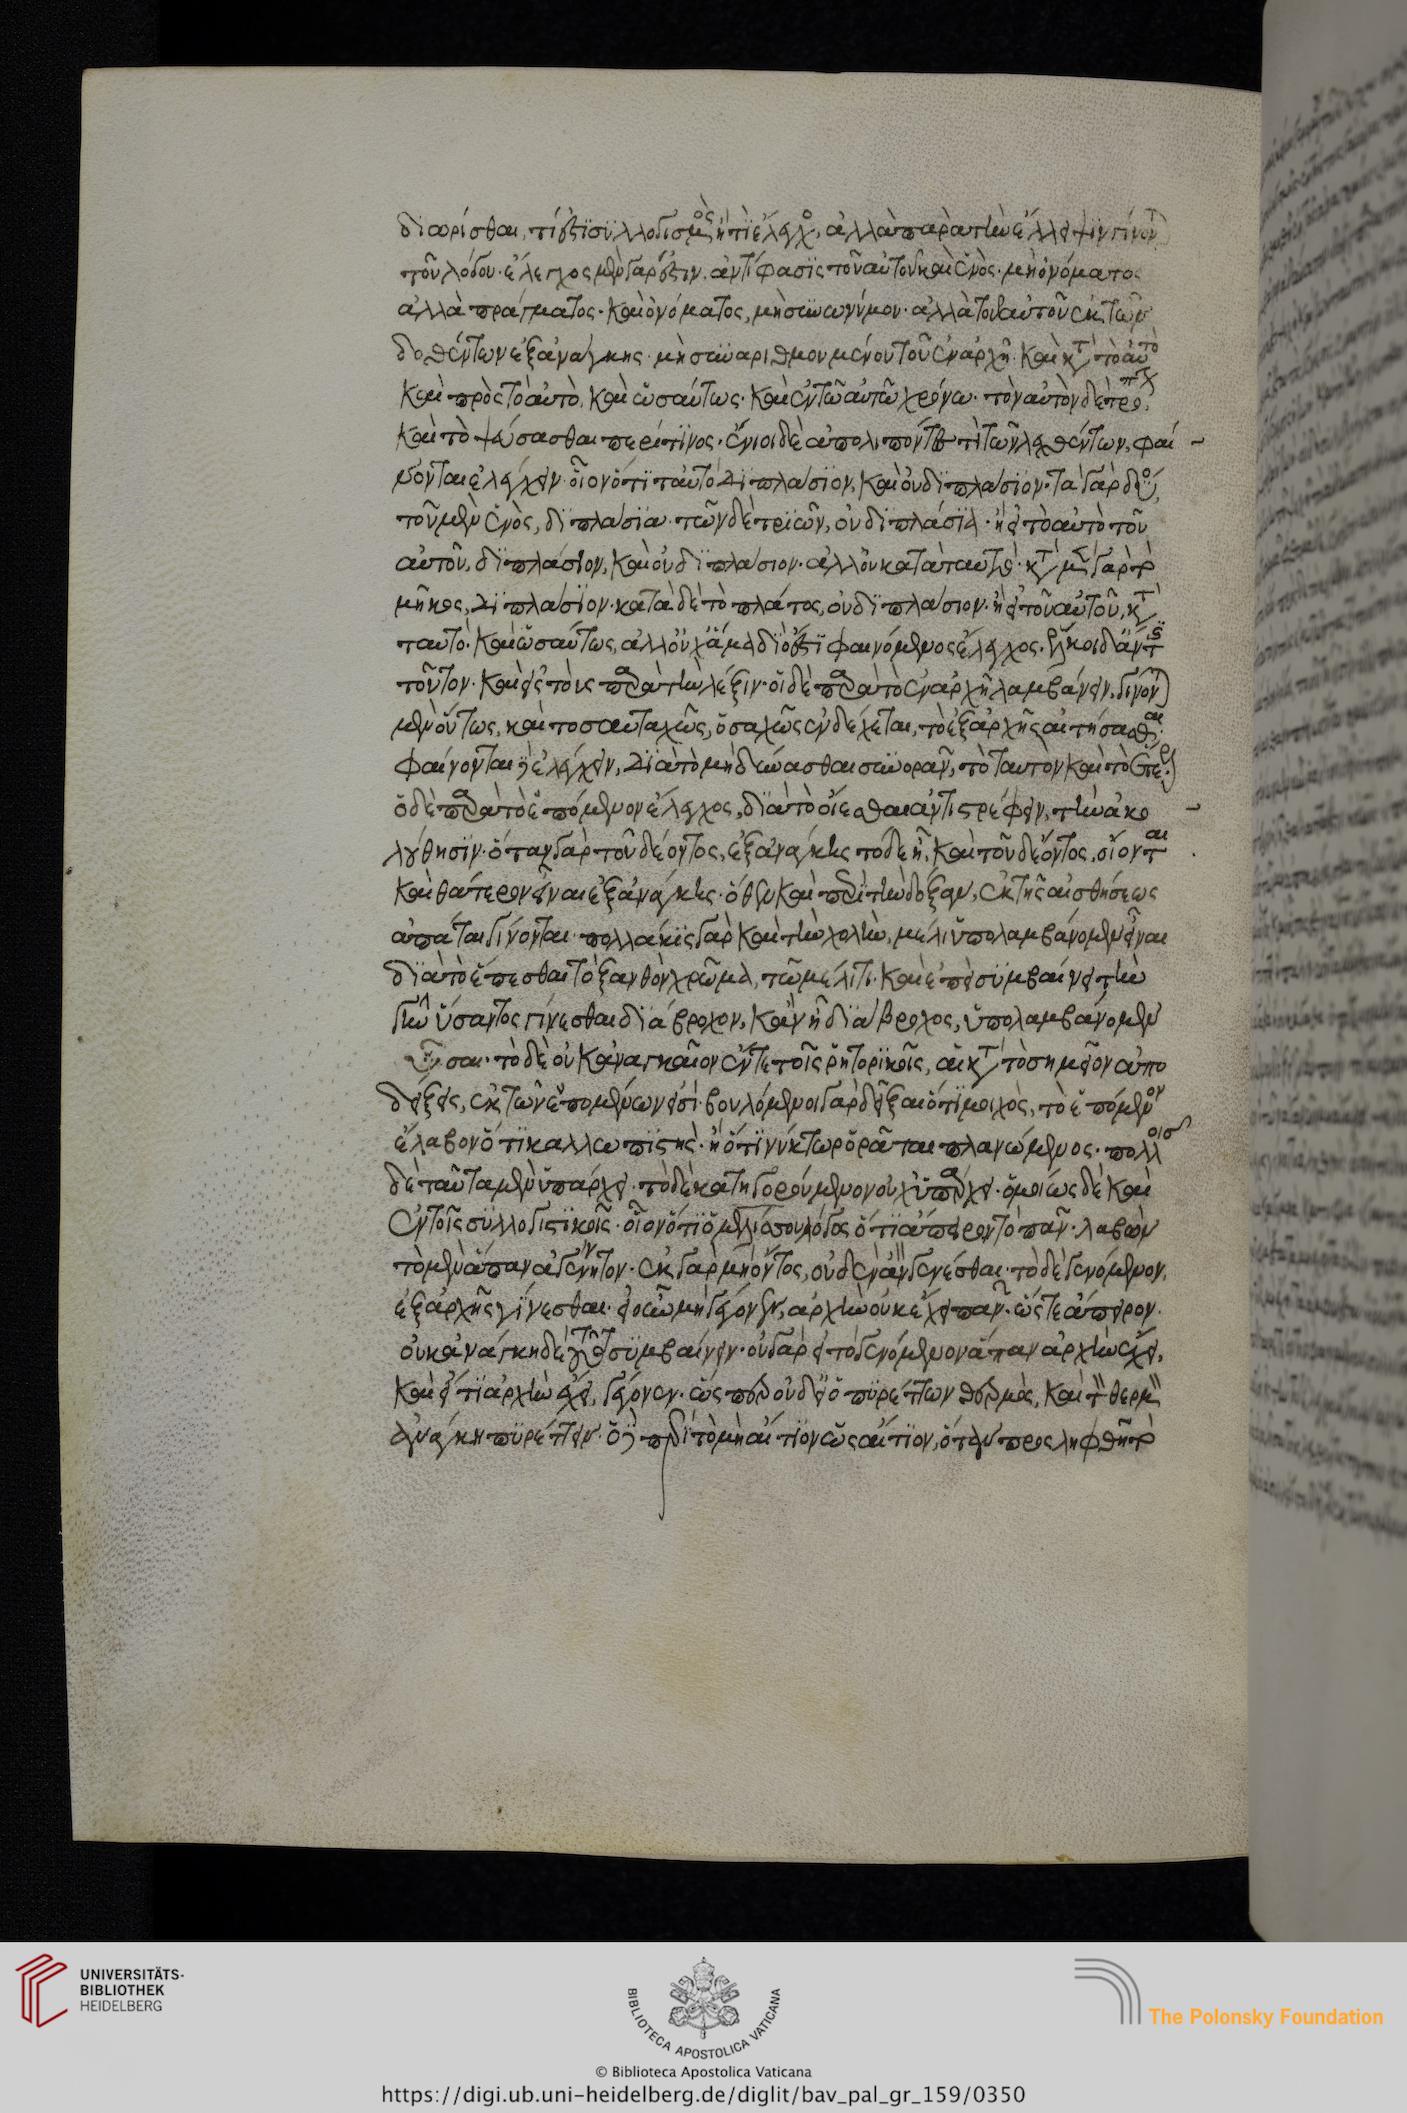 διωρίσθαι, τί ἐστι συλλογισμὸς ἢ τί ἔλεγχος, ἀλλὰ παρὰ τὴν ἔλλειψιν γίνον
τοῦ λόγου· ἔλεγχος μὲν γάρ ἐστιν, ἀντίφασις τοῦ αὐτοῦ καὶ ἑνὸς· μὴ ὀνόματος
ἀλλὰ πράγματος· καὶ ὀνόματος, μὴ συνωνύμου· ἀλλὰ τοῦ αὐτοῦ ἐκ τῶν
δοθέντων ἐξ ἀνάγκης· μὴ συναριθμουμένου τοῦ ἐν ἀρχῇ· καὶ κτ τὸ αὐτὸ
καὶ πρὸς τὸ αὐτὸ, καὶ ὡσαύτως· καὶ ἐν τῷ αὐτῷ χρόνω· τὸν αὐτὸν δὲ τρό
καὶ τὸ ψεύσασθαι περί τινος· ἔνιοι δὲ ἀπολιπόντες τὶ τῶν λεχθέντων, φαί
νονται ἐλέγχειν· οἷον ὅτι ταὐτὸ διπλάσιον, καὶ οὐ διπλάσιον· τὰ γὰρ δύο,
τοῦ μὲν ἑνὸς, διπλάσια· τῶν δὲ τριῶν, οὐ διπλάσια· ἢ εἰ τὸ αὐτὸ τοῦ
αὐτοῦ, διπλάσιον, καὶ οὐ διπλάσιον· ἀλλ' οὐ κατὰ ταὐτό· κτ μὲν γὰρ τὸ
μῆκος, διπλάσιον· κατὰ δὲ τὸ πλάτος, οὐ διπλάσιον· ἢ εἰ τοῦ αὐτοῦ, κτ
ταυτὸ· καὶ ὡσαύτως, ἀλλ' οὐχ ἅμα διό ἐστι φαινόμενος ἔλεγχος· ἕλκοι δ' ἄν τις
τοῦτον· καὶ εἰς τοὺς παρὰ τὴν λέξιν· οἱ δὲ παρὰ τὸ ἐν ἀρχῇ λαμβάνειν, γίνον
μὲν οὕτως, καὶ τοσαυταχῶς, ὁσαχῶς ἐνδέχεται, τὸ ἐξ ἀρχῆς αἰτήσασθαι·
φαίνονται δὲ ἐλέγχειν, διὰ τὸ μὴ δύνασθαι συνορᾶν, τὸ ταυτὸν καὶ τὸ ἕτερ
ὁ δὲ παρὰ τὸ ἑπόμενον ἔλεγχος, διὰ τὸ οἴεσθαι ἀντιστρέφειν, τὴν ἀκο
λούθησιν· ὅταν γὰρ τοῦδε ὄντος, ἐξ ἀνάγκης τόδε ῇ, καὶ τοῦδε ὄντος, οἴονται
καὶ θάτερον εἶναι ἐξ ἀνάγκης· ὅθεν καὶ περὶ τὴν δόξαν, ἐκ τῆς αἰσθήσεως
ἀπάται γίνονται· πολλάκις γὰρ καὶ τὴν χολὴν, μέλι ὑπολαμβάνομεν εἶναι
διὰ τὸ ἕπεσθαι τὸ ξανθὸν χρῶμα, τῷ μέλιτι· καὶ ἐπεὶ συμβαίνει τὴν
γῆν ὕσαντος γίνεσθαι διάβροχον, κἂν ῇ διάβροχος, ὑπολαμβάνομεν
ὗσαι· τὸ δὲ οὐκ ἀναγκαῖον ἔν τε τοῖς ῥητορικοῖς, αἱ κτ τὸ σημεῖον ἀπο
δείξεις, ἐκ τῶν ἑπομένων εἰσί· βουλόμενοι γὰρ δεῖξαι ὅτι μοιχὸς, τὸ ἑπόμενον
ἔλαβον ὅτι καλλωπιστής· ἢ ὅτι νύκτωρ ὁρᾶται πλανώμενος· πολλοῖς
δὲ ταῦτα μὲν ὑπάρχει· τὸ δὲ κατηγορούμενον οὐχ ὑπάρχει· ὁμοίως δὲ καὶ
ἐν τοῖς συλλογιστικοῖς· οἷον ὁ τοῦ μελίσσου λόγος ὅτι ἄπειρον τὸ πᾶν· λαβὼν
τὸ μὲν ἅπαν ἀγένητον· ἐκ γὰρ μὴ ὄντος, οὐδὲν ἂν γενέσθαι· τὸ δὲ γενόμενον,
ἐξ ἀρχῆς γίνεσθαι· εἰ οὖν μὴ γέγονεν, ἀρχὴν οὐκ ἔχει πᾶν· ὥστε ἄπειρον·
οὐκ ἀνάγκη δὲ τοῦτο συμβαίνειν· οὐ γὰρ εἰ τὸ γενόμενον ἅπαν ἀρχὴν ἔχει,
καὶ εἴ τι ἀρχὴν ἔχει, γέγονεν· ὥσπερ οὐδὲ εἰ ὁ πυρέττων θερμὸς, καὶ τὸν θερμὸν
ἀνάγκη πυρέττειν· ὁ δὲ παρὰ τὸ μὴ αἴτιον ὡς αἴτιον, ὅταν προσληφθῇ τὸ
UNIVERSITÄTS-
BIBLIOTHEK
HEIDELBERG
BIBLIOTECA APOSTOLICA VATICANA
The Polonsky Foundation
© Biblioteca Apostolica Vaticana
https://digi.ub.uni-heidelberg.de/diglit/bav_pal_gr_159/0350